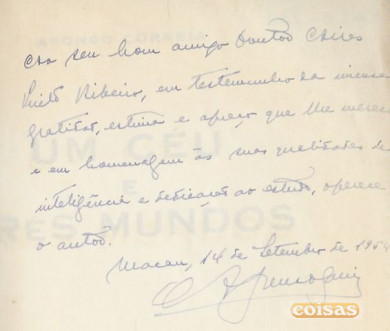 AFONSO CORREIA
Ao seu bom amigo Doutor Aires
Pinto Ribeiro, em testemunho da imensa
gratidão, estima e apreço que lhe merece
e em homenagem às suas qualidades de
inteligência e dedicação ao estudo, oferece
o autor.
UM CÉU
E
TRES MUNDOS
Macau, 14 de Setembro de 195
coisas